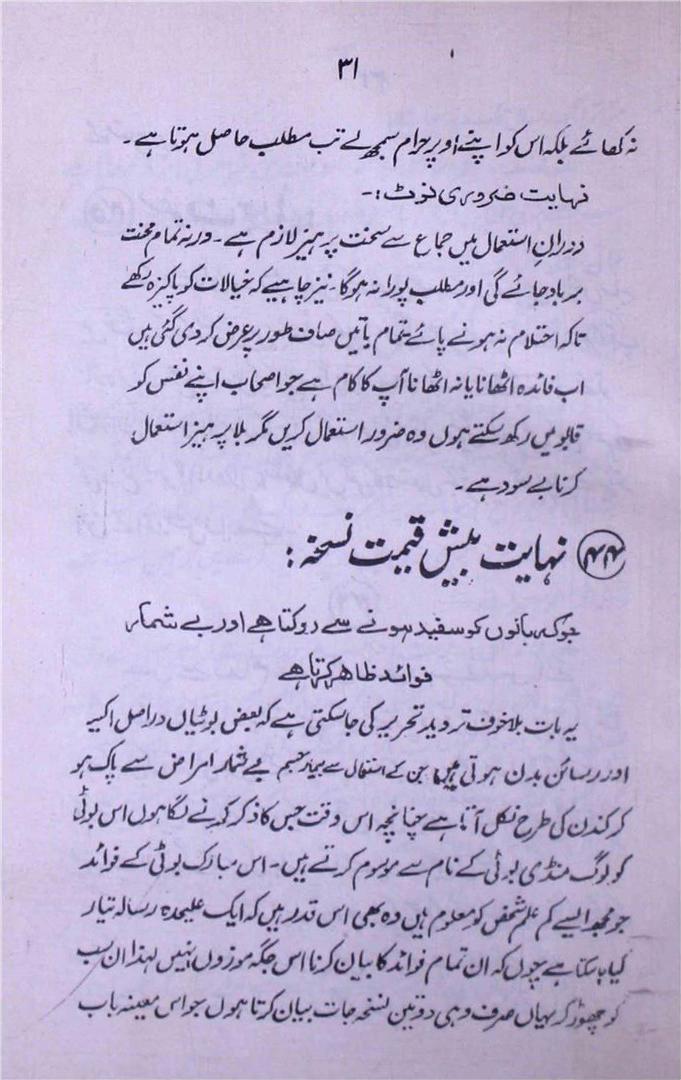 ۳۱
نہ کھائے بلکہ اس کو اپنے اوپر حرام سمجھ لے تب مطلب حاصل ہوتا ہے۔
نہایت ضروری نوٹ :۔
دورانِ استعمال میں جماع سے سخت پرہیز لازم ہے۔ ورنہ تمام محنت
برباد جائے گی اور مطلب پورا نہ ہوگا۔ نیز چاہیے کہ خیالات کو پاکیزہ رکھے
تاکہ احتلام نہ ہونے پائے تمام باتیں صاف طور پر عرض کر دی گئی ہیں
اب فائدہ اٹھانا یا نہ اٹھانا آپ کا کام ہے جو اصحاب اپنے نفس کو
قابو میں رکھ سکتے ہوں وہ ضرور استعمال کریں مگر بلا پرہیز استعمال
کرنا بے سود ہے۔
۴۴ نہایت بیش قیمت نسخہ :
جو کہ بالوں کو سفید ہونے سے روکتا ہے اور بے شمار
فوائد ظاہر کرتا ہے
یہ بات بلا خوف تردید تحریر کی جا سکتی ہے کہ بعض بوٹیاں دراصل اکسیر
اور رسائن بدن ہوتی ہیں جن کے استعمال سے بیمار جسم بے شمار امراض سے پاک ہو
کر کندن کی طرح نکل آتا ہے چنانچہ اس وقت جس کا ذکر کرنے لگا ہوں اس بوٹی
کو لوگ منڈی بوٹی کے نام سے موسوم کرتے ہیں۔ اس مبارک بوٹی کے فوائد
جو مجھ ایسے کم علم شخص کو معلوم ہیں وہ بھی اس قدر ہیں کہ ایک علیحدہ رسالہ تیار
کیا جا سکتا ہے چوں کہ ان تمام فوائد کا بیان کرنا اس جگہ موزوں نہیں لہذا ان سب
کو چھوڑ کر یہاں صرف وہی دو تین نسخہ جات بیان کرتا ہوں جو اس معینہ باب